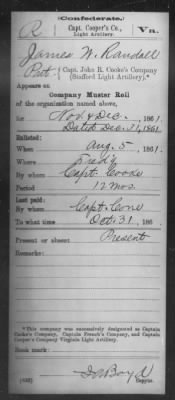 Confederate.
R Capt. Cooper's Co., Va.
Light Artillery.
James W. Randall
Pvt. Capt. John R. Cooke's Company
(Stafford Light Artillery).*
Appears on
Company Muster Roll
of the organization named above,
for Nov & Dec., 1861.
Dated Dec. 31, 1861
Enlisted:
When Aug. 5, 1861.
Where Fred'g
By whom Capt. Cooke
Period 12 mos.
Last paid:
By whom Capt. Cone
To what time Oct. 31, 186
Present or absent Present
Remarks:
*This company was successively designated as Captain
Cooke's Company, Captain French's Company, and Captain
Cooper's Company Virginia Light Artillery.
Book mark:
(642)
Copyist.